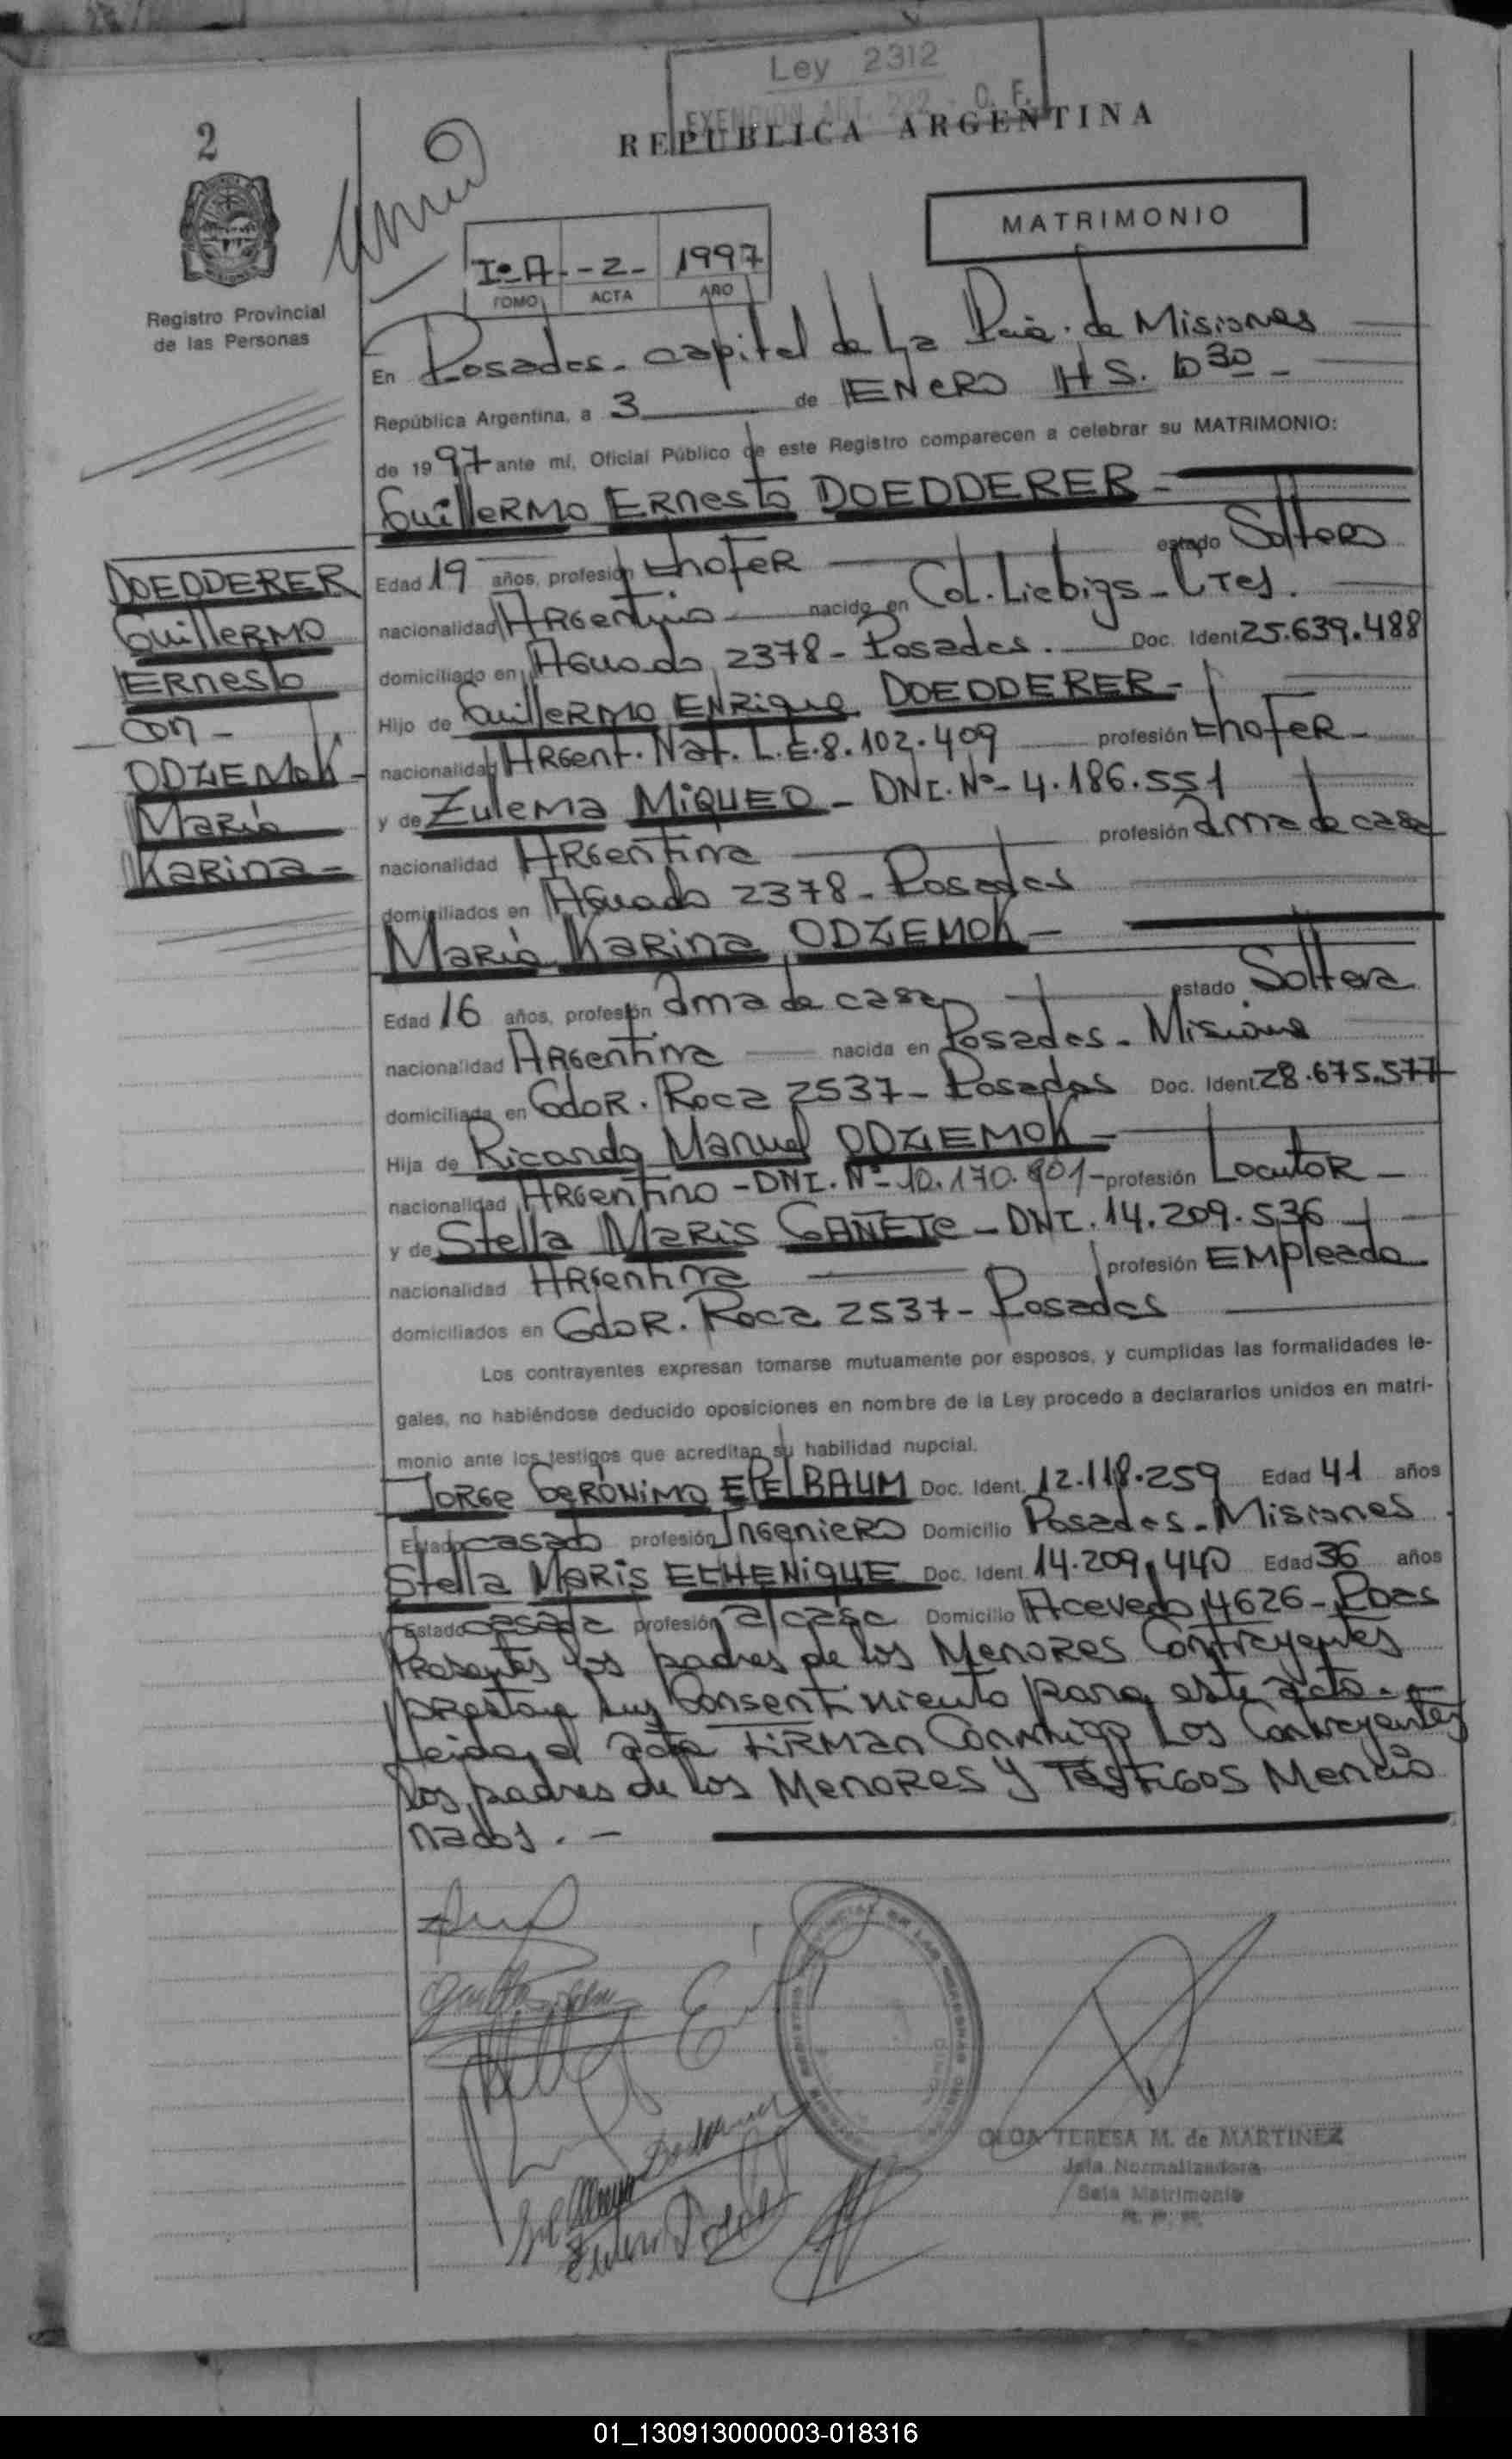 Ley 2312
EXENCION ART. 222 - O. F.
REPUBLICA ARGENTINA
2
Registro Provincial
de las Personas
MATRIMONIO
Iº A - 2 - 1997
TOMO ACTA AÑO
En Posadas - capital de la Pcia. de Misiones
República Argentina, a 3 de ENERO HS. 10 30 -
de 1997 ante mí, Oficial Público de este Registro comparecen a celebrar su MATRIMONIO:
Guillermo Ernesto DOEDDERER -
DOEDDERER
Guillermo
Ernesto
- con -
ODZIEMOK -
Maria
Karina -
Edad 19 años, profesión chofer estado Soltero
nacionalidad Argentino nacido en Col. Liebigs - Ctes.
domiciliado en Aguado 2378 - Posadas. Doc. Ident. 25.639.488
Hijo de Guillermo Enrique DOEDDERER -
nacionalidad Argent. Nat. L.E. 8.102.409 profesión chofer -
y de Zulema MIQUEO - DNI. Nº - 4.186.551
nacionalidad Argentina profesión ama de casa
domiciliados en Aguado 2378 - Posadas
Maria Karina ODZIEMOK -
Edad 16 años, profesión ama de casa estado Soltera
nacionalidad Argentina nacida en Posadas - Misiones
domiciliada en Gdor. Roca 2537 - Posadas Doc. Ident. 28.675.577
Hija de Ricardo Manuel ODZIEMOK -
nacionalidad Argentino - DNI. Nº - 10.170.801 - profesión Locutor -
y de Stella Maris CAÑETE - DNI. 14.209.536
nacionalidad Argentina profesión Empleada
domiciliados en Gdor. Roca 2537 - Posadas
Los contrayentes expresan tomarse mutuamente por esposos, y cumplidas las formalidades le-
gales, no habiéndose deducido oposiciones en nombre de la Ley procedo a declararlos unidos en matri-
monio ante los testigos que acreditan su habilidad nupcial.
Jorge Gerónimo EPELBAUM Doc. Ident. 12.118.259 Edad 41 años
Estado casado profesión Ingeniero Domicilio Posadas - Misiones
Stella Maris ECHENIQUE Doc. Ident. 14.209.440 Edad 36 años
Estado casada profesión a/casa Domicilio Acevedo 4626 - Pdas
Presentes los padres de los Menores Contrayentes
prestan su Consentimiento para este acto. -
Leida el acta FIRMAN Conmigo Los Contrayentes
los padres de los Menores y Testigos Mencio
nados. -
OLGA TERESA M. de MARTINEZ
Jefa Normalizadora
Sala Matrimonio
R. P. P.
01_130913000003-018316